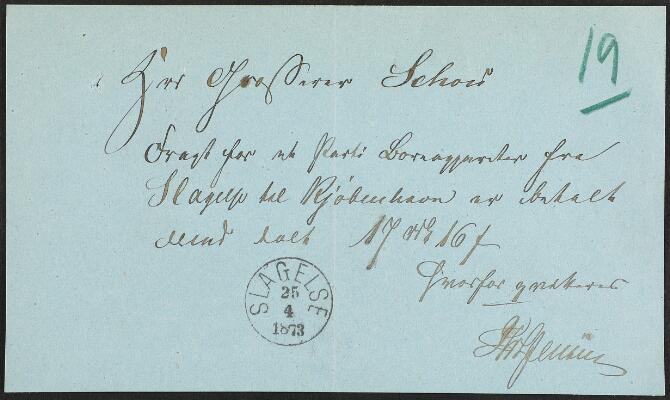 19
Hr Grosserer Schou
Fragt for et Parti Boreapparater fra
Slagelse til Kjøbenhavn er betalt
med talt 17 rd 16 s
hvorfor qvitteres
SLAGELSE
25
4
1873